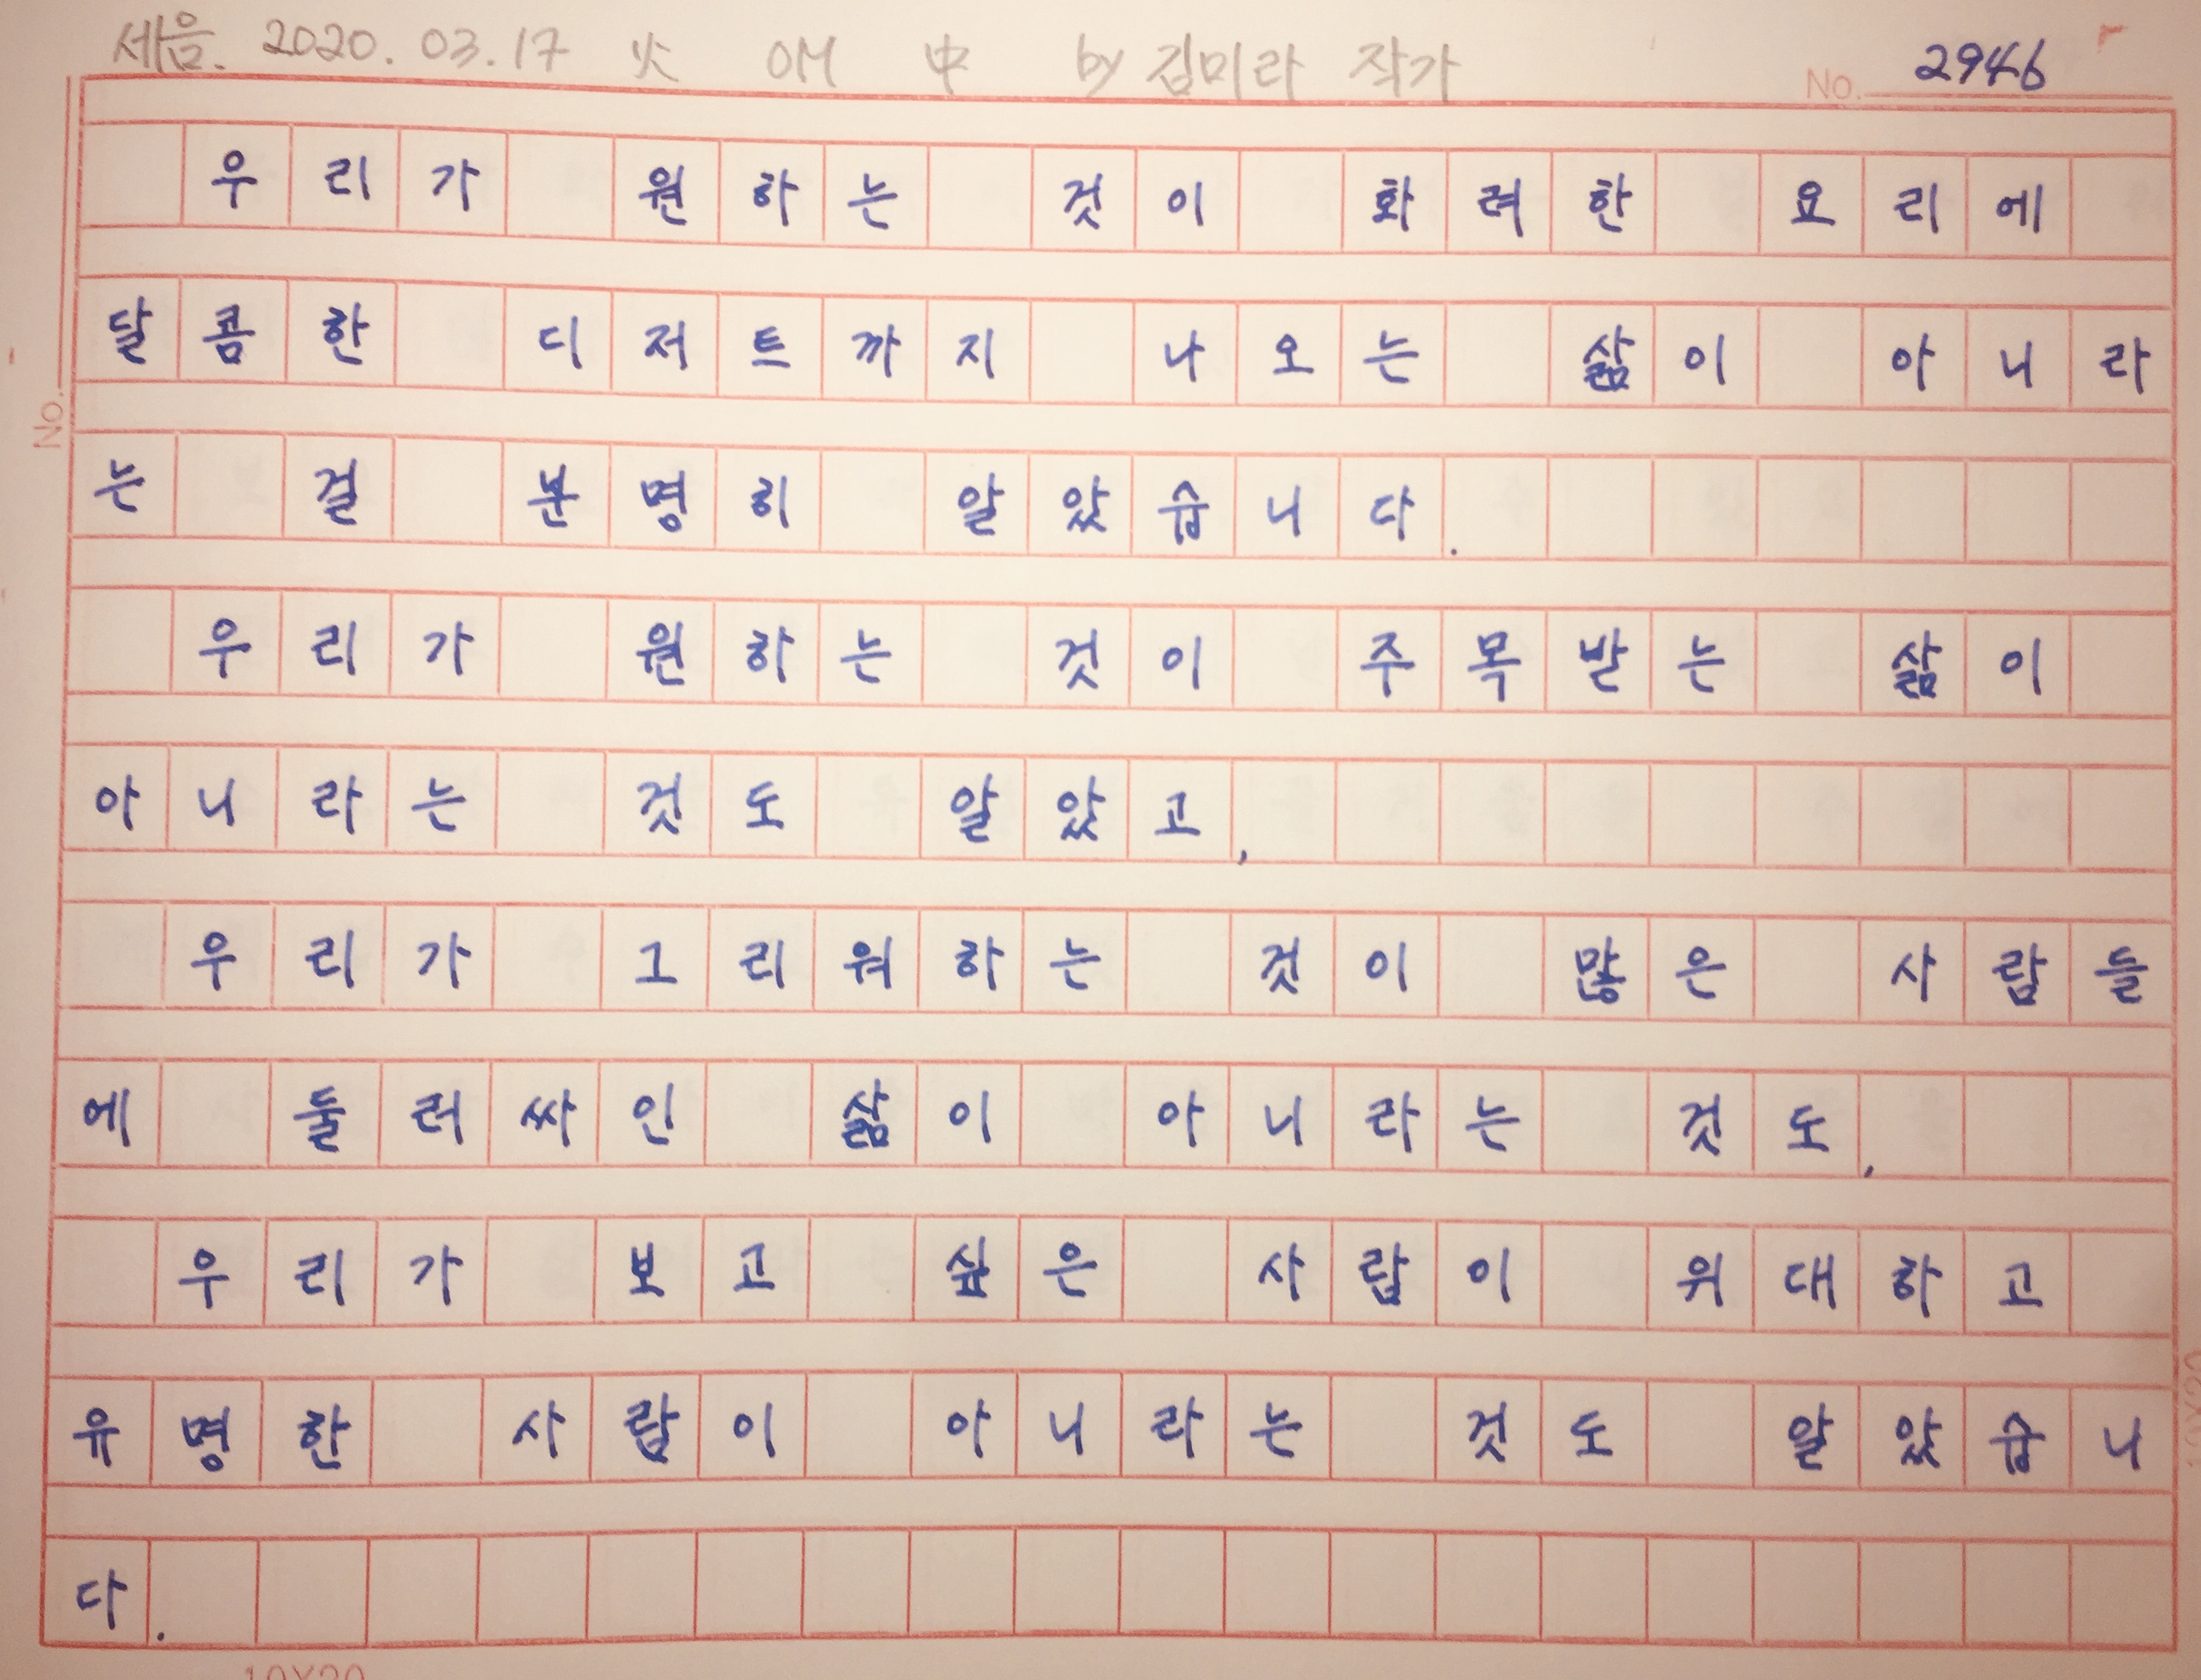 세음. 2020. 03. 17 火 OM 中 by 김미라 작가
No. 2946
우리가 원하는 것이 화려한 요리에
달콤한 디저트까지 나오는 삶이 아니라
는 걸 분명히 알았습니다.
우리가 원하는 것이 주목받는 삶이
아니라는 것도 알았고,
우리가 그리워하는 것이 많은 사람들
에 둘러싸인 삶이 아니라는 것도,
우리가 보고 싶은 사람이 위대하고
유명한 사람이 아니라는 것도 알았습니
다.
No.
10X20